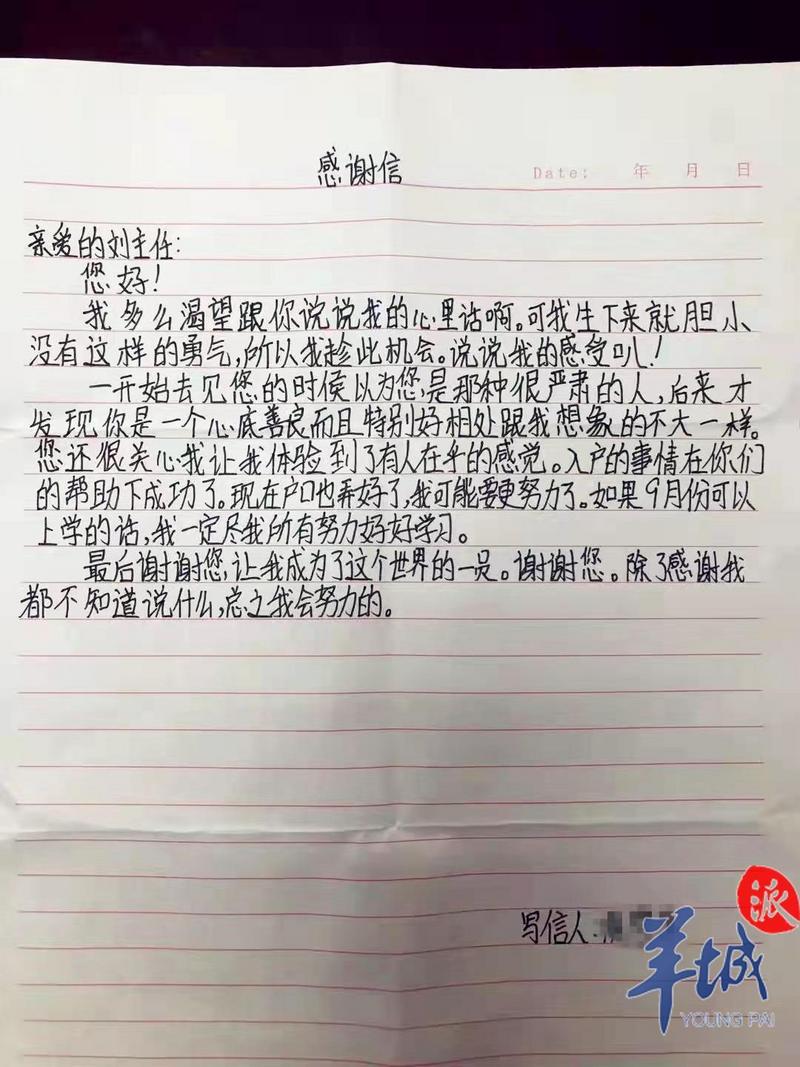 感谢信
Date: 年 月 日
亲爱的刘主任:
您好!
我多么渴望跟你说说我的心里话啊。可我生下来就胆小
没有这样的勇气,所以我趁此机会。说说我的感受叭!
一开始去见您的时候以为您是那种很严肃的人,后来才
发现你是一个心底善良而且特别好相处跟我想象的不大一样。
您还很关心我让我体验到了有人在乎的感觉。入户的事情在你们
的帮助下成功了。现在户口也弄好了,我可能要更努力了。如果9月份可以
上学的话,我一定尽我所有努力好好学习。
最后谢谢您,让我成为了这个世界的一员。谢谢您。除了感谢我
都不知道说什么,总之我会努力的。
写信人:
派
羊城
YOUNG PAI